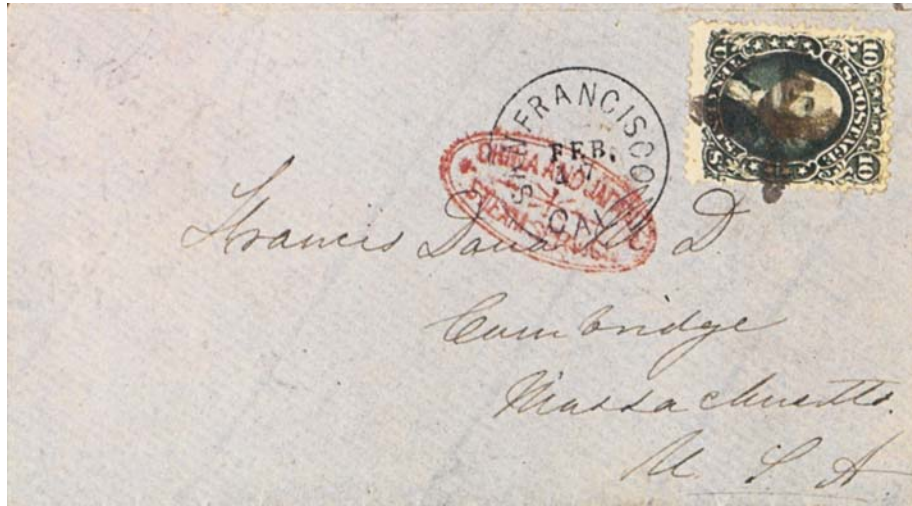 10 U.S. POSTAGE 10
SAN FRANCISCO
FEB.
CAL
CHINA AND JAPAN
STEAM SERVICE
Francis Dana M D
Cambridge
Massachusetts.
U S A